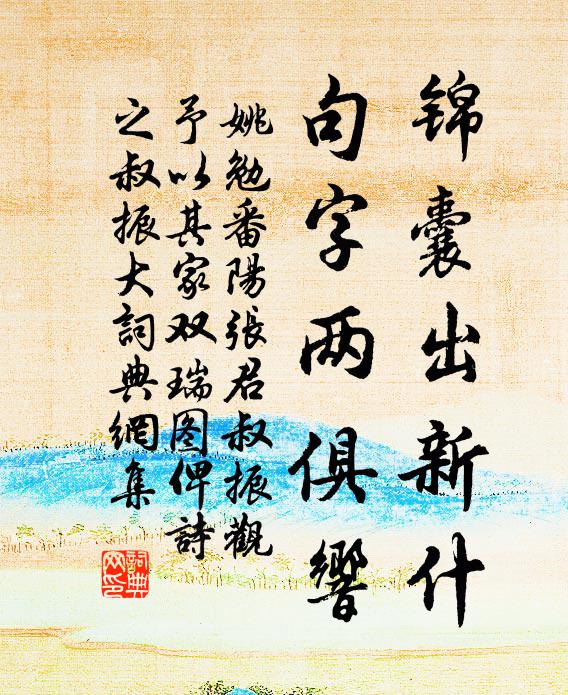 锦囊出新什
句字两俱響
姚勉番陽張君叔振觀
予以其家双瑞图俾詩
之叔振大詞典網集
詞典网印